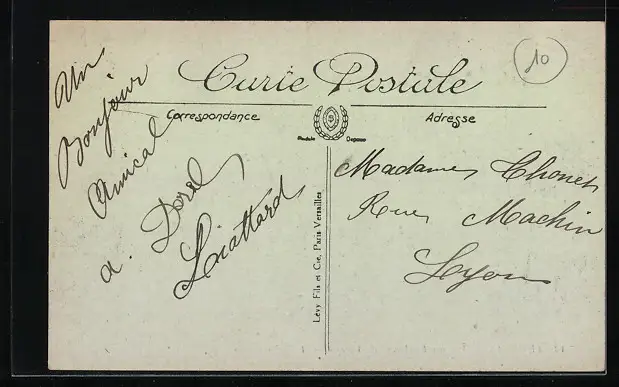 10
Carte Postale
Correspondance
Adresse
Modèle Déposé
Un
Bonjour
Amical
a.
Liattard
Lévy Fils et Cie, Paris Versailles
Madame
Rue Machin
Lyon